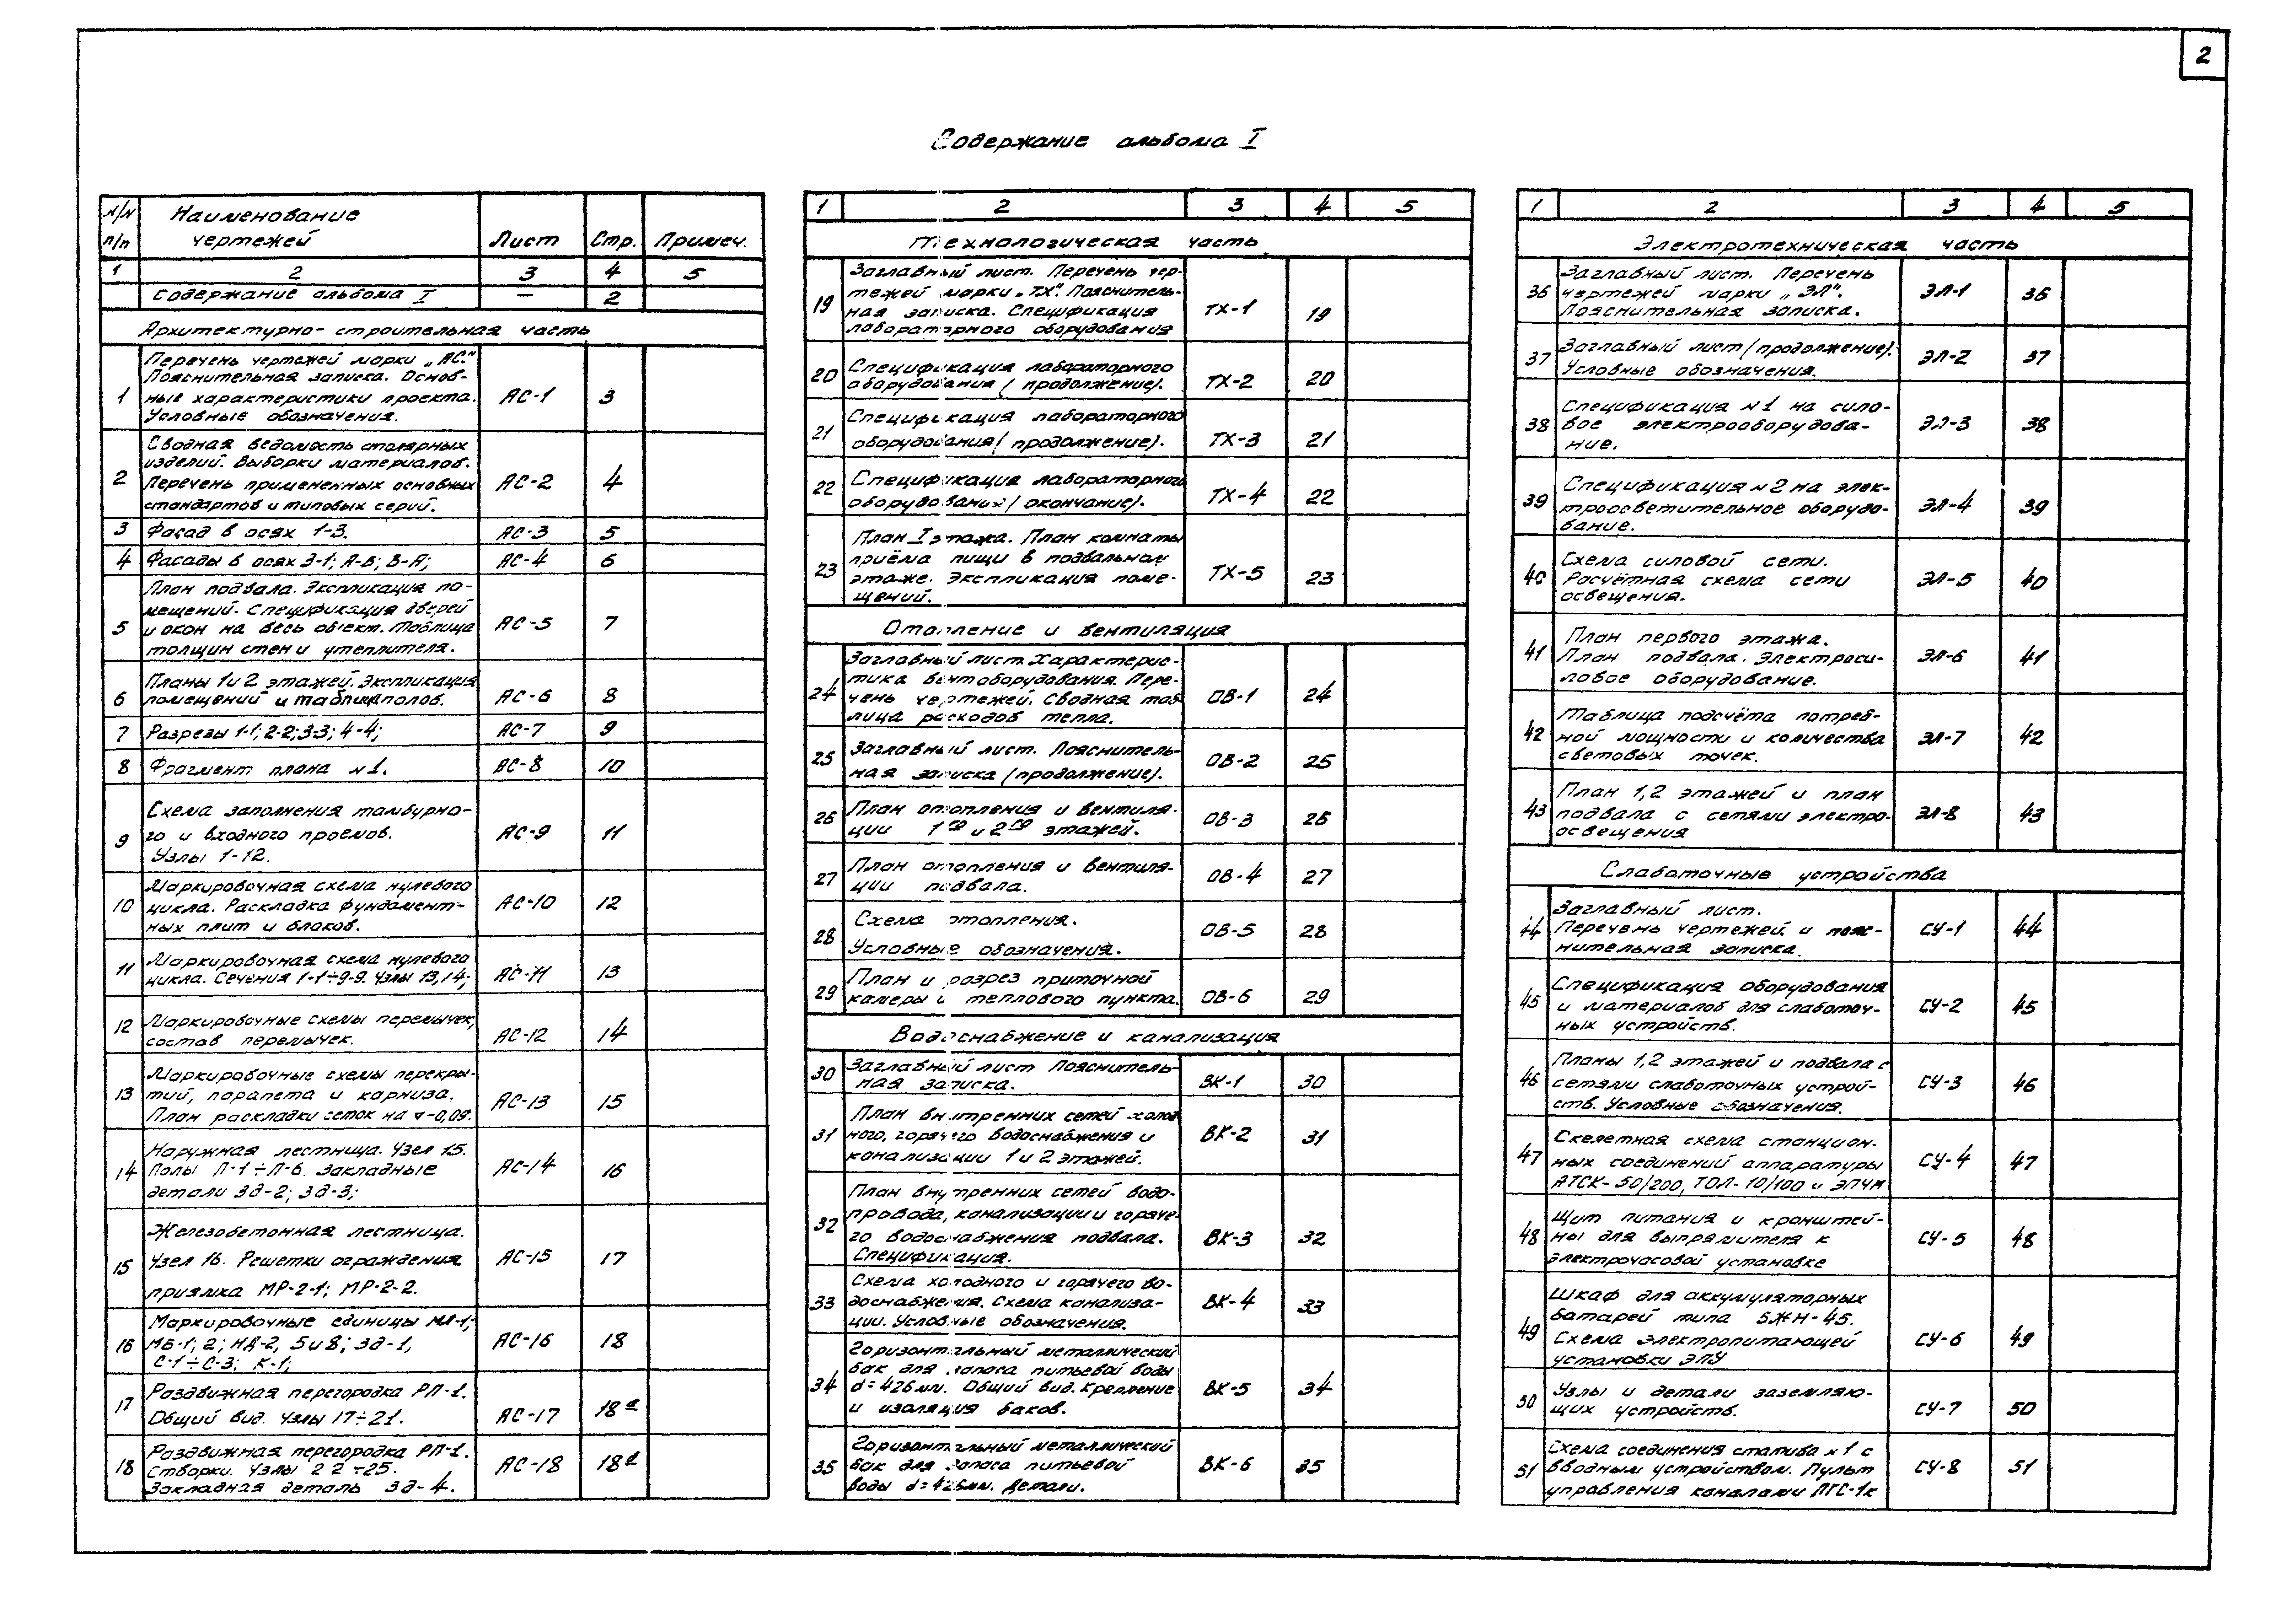 2
Содержание альбома I
N/N п/п Наименование чертежей Лист Стр. Примеч.
1 2 3 4 5
Содержание альбома I — 2
Архитектурно-строительная часть
1 Перечень чертежей марки „АС".
Пояснительная записка. Основ-
ные характеристики проекта.
Условные обозначения. АС-1 3
2 Сводная ведомость столярных
изделий. Выборки материалов.
Перечень примененных основных
стандартов и типовых серий. АС-2 4
3 Фасад в осях 1-3. АС-3 5
4 Фасады в осях 3-1; А-В; В-А; АС-4 6
5 План подвала. Экспликация по-
мещений. Спецификация дверей
и окон на весь объект. Таблица
толщин стен и утеплителя. АС-5 7
6 Планы 1 и 2 этажей. Экспликация
помещений и таблица полов. АС-6 8
7 Разрезы 1-1; 2-2; 3-3; 4-4; АС-7 9
8 Фрагмент плана N1. АС-8 10
9 Схема заполнения тамбурно-
го и входного проемов.
Узлы 1-12. АС-9 11
10 Маркировочная схема нулевого
цикла. Раскладка фундамент-
ных плит и блоков. АС-10 12
11 Маркировочная схема нулевого
цикла. Сечения 1-1÷9-9. Узлы 13,14; АС-11 13
12 Маркировочные схемы перемычек,
состав перемычек. АС-12 14
13 Маркировочные схемы перекры-
тий, парапета и карниза.
План раскладки сеток на -0,09. АС-13 15
14 Наружная лестница. Узел 15.
Полы П-1÷П-6. Закладные
детали ЗД-2; ЗД-3; АС-14 16
15 Железобетонная лестница.
Узел 16. Решетки ограждения
приямка МР-2-1; МР-2-2. АС-15 17
16 Маркировочные единицы МЛ-1;
МБ-1; 2; НД-2, 5 и 8; ЗД-1,
С-1÷С-3; К-1; АС-16 18
17 Раздвижная перегородка РП-1.
Общий вид. Узлы 17÷21. АС-17 18а
18 Раздвижная перегородка РП-1.
Створки. Узлы 22÷25.
Закладная деталь ЗД-4. АС-18 18
1 2 3 4 5
Технологическая часть
19 Заглавный лист. Перечень чер-
тежей марки „ТХ". Пояснитель-
ная записка. Спецификация
лабораторного оборудования ТХ-1 19
20 Спецификация лабораторного
оборудования (продолжение). ТХ-2 20
21 Спецификация лабораторного
оборудования (продолжение). ТХ-3 21
22 Спецификация лабораторного
оборудования (окончание). ТХ-4 22
23 План I этажа. План комнаты
приёма пищи в подвальном
этаже. Экспликация поме-
щений. ТХ-5 23
Отопление и вентиляция
24 Заглавный лист. Характерис-
тика вентоборудования. Пере-
чень чертежей. Сводная таб-
лица расходов тепла. ОВ-1 24
25 Заглавный лист. Пояснитель-
ная записка (продолжение). ОВ-2 25
26 План отопления и вентиля-
ции 1го и 2го этажей. ОВ-3 26
27 План отопления и вентиля-
ции подвала. ОВ-4 27
28 Схема отопления.
Условные обозначения. ОВ-5 28
29 План и разрез приточной
камеры и теплового пункта. ОВ-6 29
Водоснабжение и канализация
30 Заглавный лист Пояснитель-
ная записка. ВК-1 30
31 План внутренних сетей холод-
ного, горячего водоснабжения и
канализации 1 и 2 этажей. ВК-2 31
32 План внутренних сетей водо-
провода, канализации и горяче-
го водоснабжения подвала.
Спецификация. ВК-3 32
33 Схема холодного и горячего во-
доснабжения. Схема канализа-
ции. Условные обозначения. ВК-4 33
34 Горизонтальный металлический
бак для запаса питьевой воды
d=426мм. Общий вид. Крепление
и изоляция баков. ВК-5 34
35 Горизонтальный металлический
бак для запаса питьевой
воды d=426мм. Детали. ВК-6 35
1 2 3 4 5
Электротехническая часть
36 Заглавный лист. Перечень
чертежей марки „ЭЛ".
Пояснительная записка. ЭЛ-1 36
37 Заглавный лист (продолжение).
Условные обозначения. ЭЛ-2 37
38 Спецификация N1 на сило-
вое электрооборудова-
ние. ЭЛ-3 38
39 Спецификация N2 на элек-
троосветительное оборудо-
вание. ЭЛ-4 39
40 Схема силовой сети.
Расчётная схема сети
освещения. ЭЛ-5 40
41 План первого этажа.
План подвала. Электроси-
ловое оборудование. ЭЛ-6 41
42 Таблица подсчёта потреб-
ной мощности и количества
световых точек. ЭЛ-7 42
43 План 1,2 этажей и план
подвала с сетями электро-
освещения ЭЛ-8 43
Слаботочные устройства
44 Заглавный лист.
Перечень чертежей и пояс-
нительная записка. СУ-1 44
45 Спецификация оборудования
и материалов для слаботоч-
ных устройств. СУ-2 45
46 Планы 1,2 этажей и подвала с
сетями слаботочных устрой-
ств. Условные обозначения. СУ-3 46
47 Скелетная схема станцион-
ных соединений аппаратуры
АТСК-50/200, ТОЛ-10/100 и ЭПЧМ СУ-4 47
48 Щит питания и кронштей-
ны для выпрямителя к
электрочасовой установке СУ-5 48
49 Шкаф для аккумуляторных
батарей типа 5ЖН-45.
Схема электропитающей
установки ЭПУ СУ-6 49
50 Узлы и детали заземляю-
щих устройств. СУ-7 50
51 Схема соединения статива N1 с
вводным устройством. Пульт
управления каналами ПГС-1к СУ-8 51